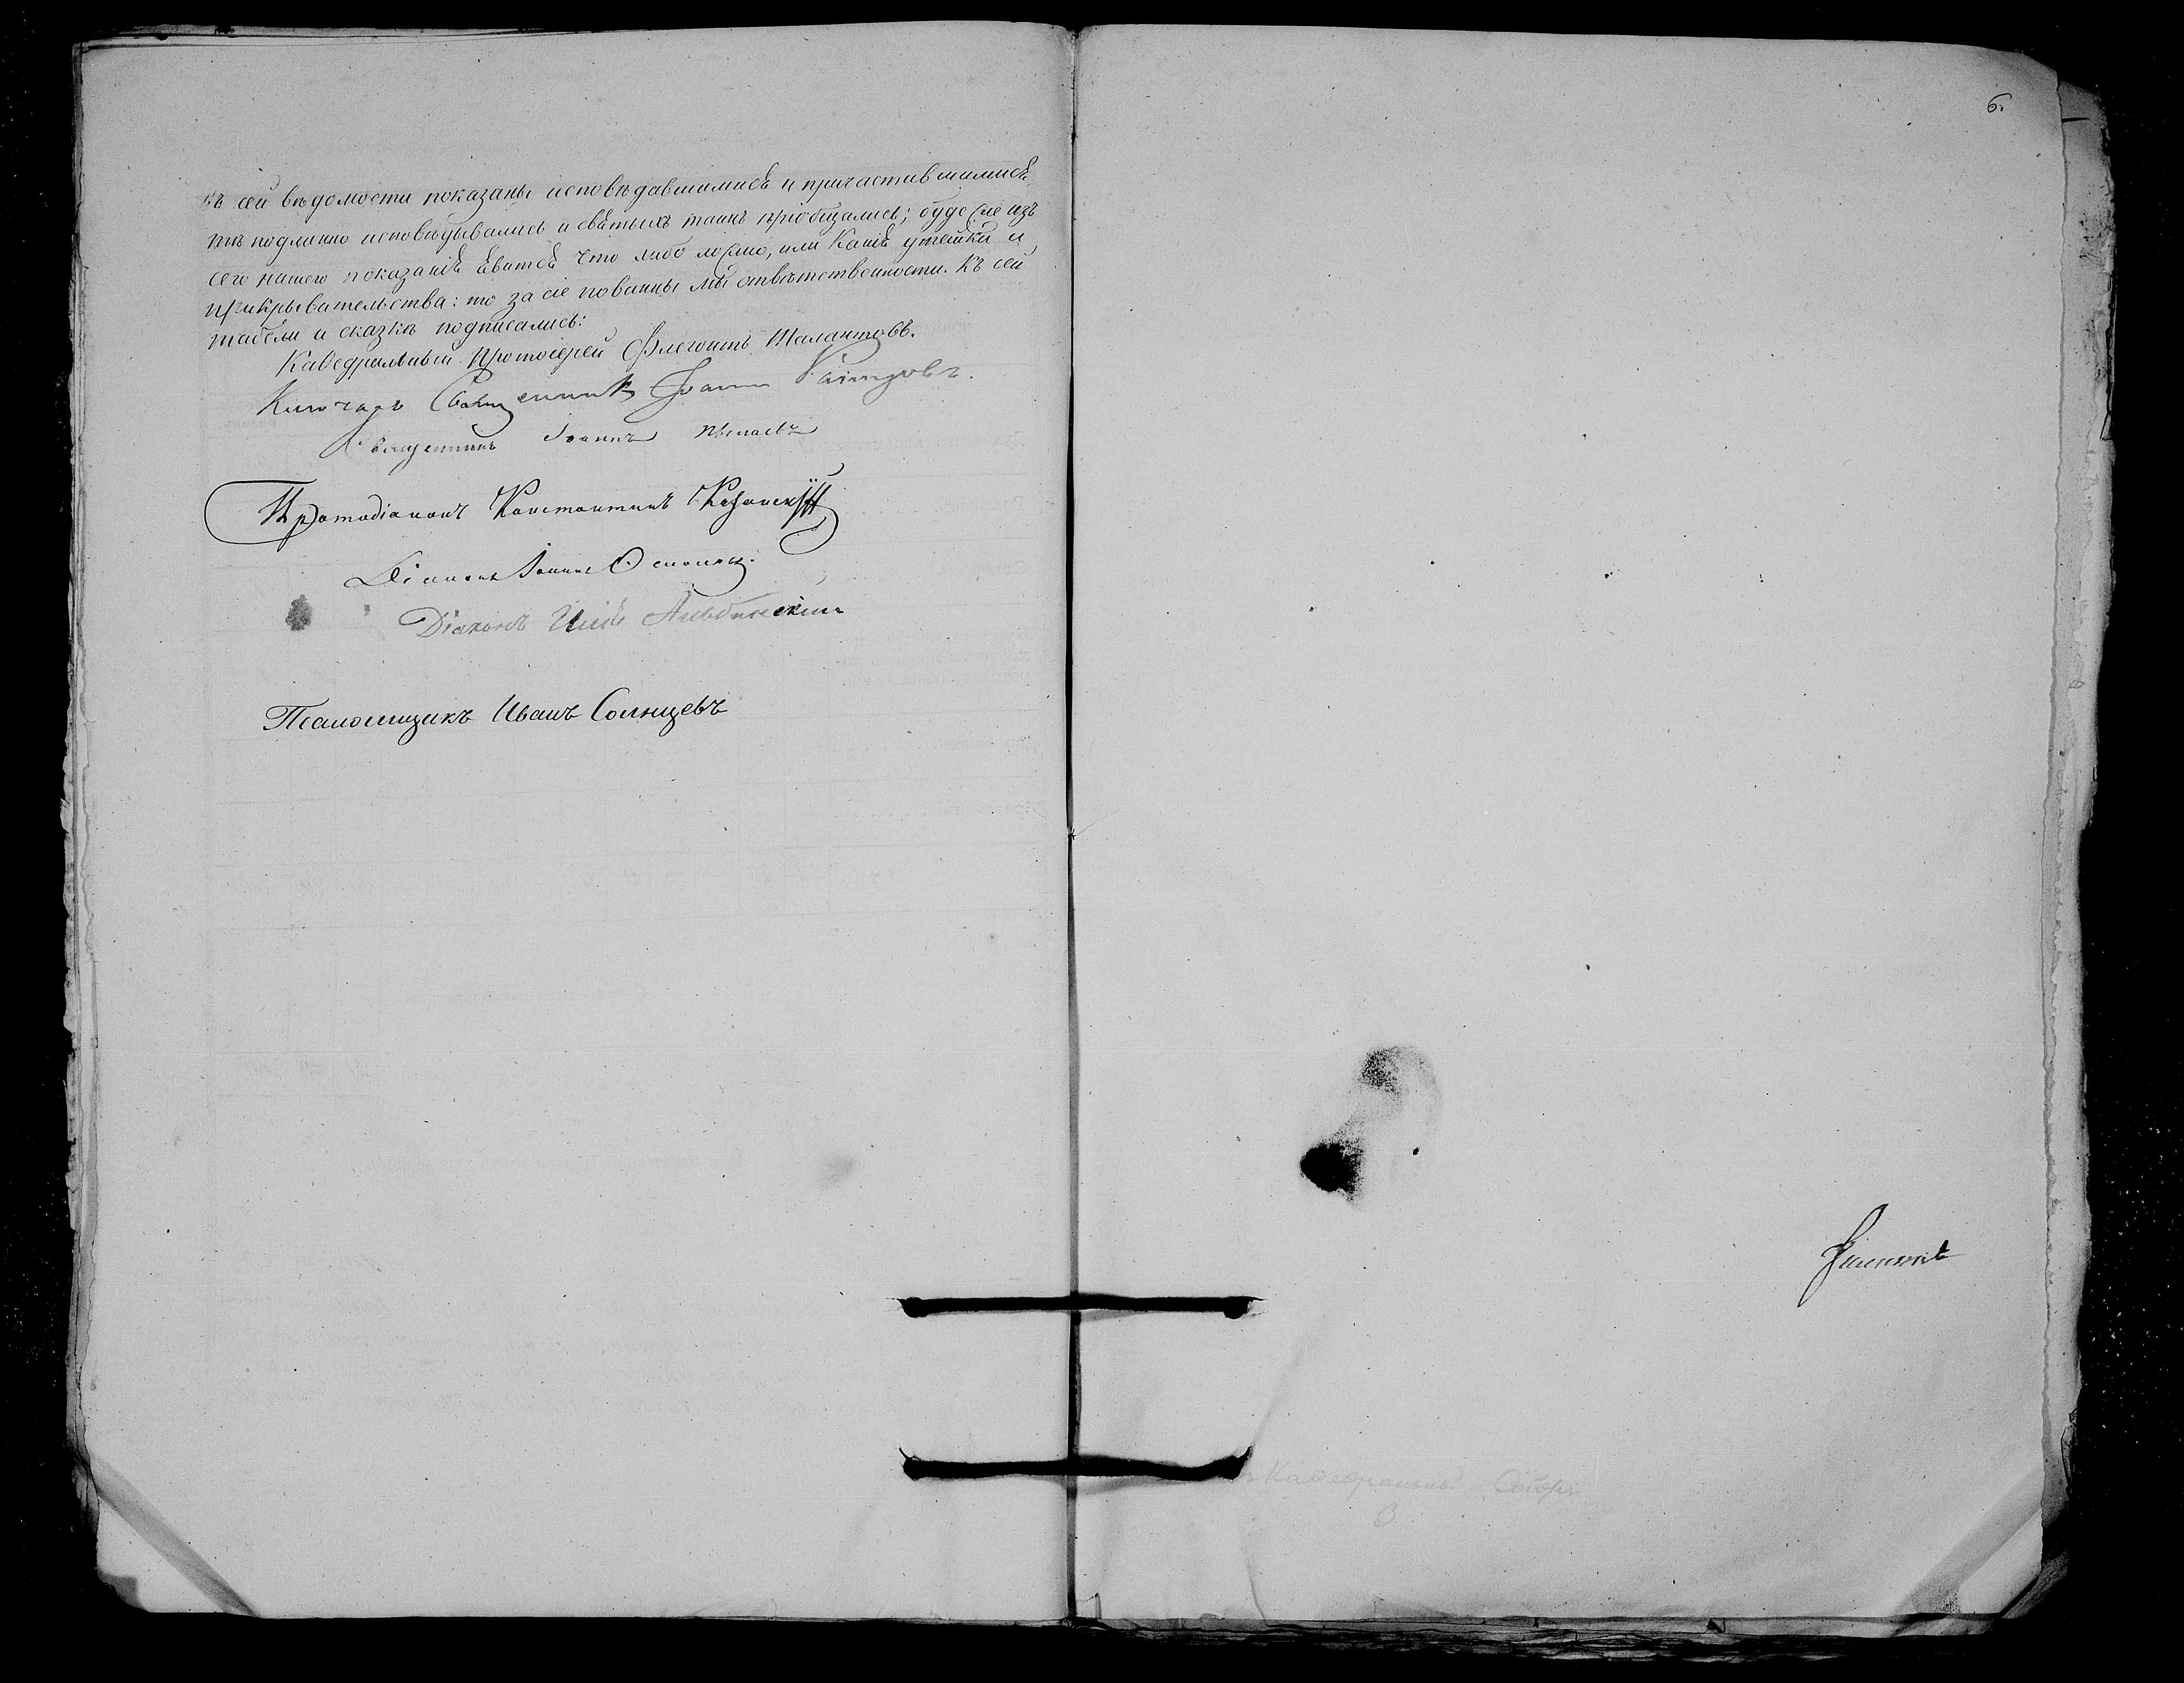 къ сей вѣдомости показаны исповѣдавшимися и причастившимися,
тѣ подлинно исповѣдывались и святыхъ таинъ пріобщались; буде же изъ
сего нашего показанія явится что либо ложно, или какія утайки и
прикрывательства: то за сіе повинны мы отвѣтственности. Къ сей
табели и сказкѣ подписались:
Каѳедральный Протоіерей Флегонтъ Талантовъ.
Ключарь Священникъ Іоаннъ
Священникъ Іоаннъ
Протодіаконъ Константинъ Казанскій
Діаконъ Іоаннъ Осокинъ.
Діаконъ Илія Альбинскій
Псаломщикъ Иванъ Солнцевъ
6.
Каѳедральн Собор
3